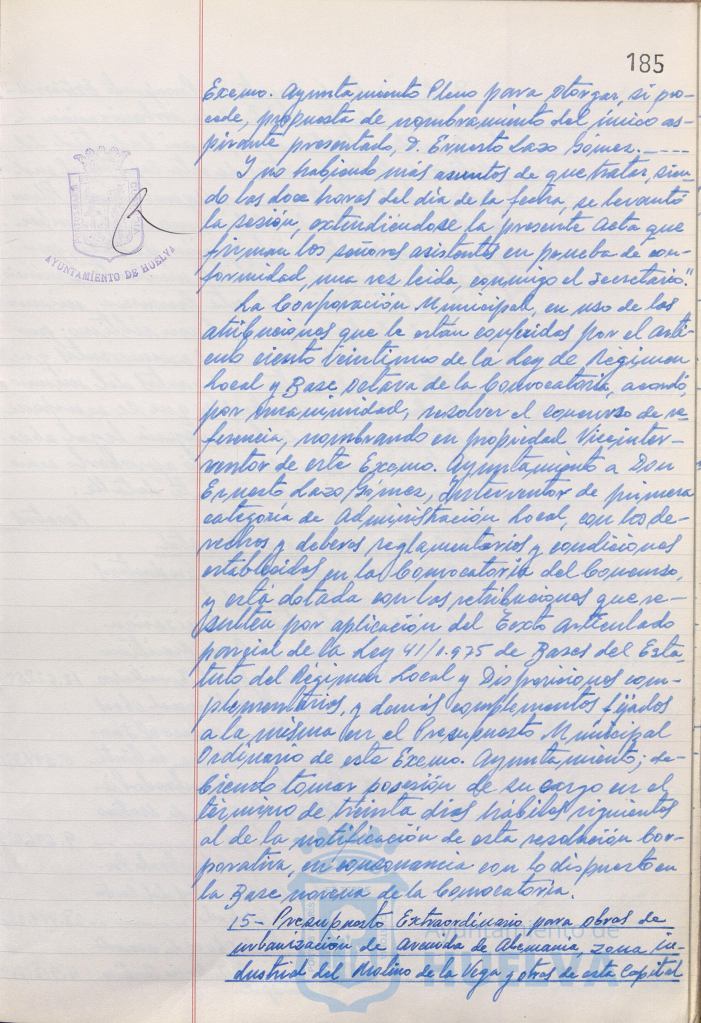 185
Excmo. Ayuntamiento Pleno para otorgar, si pro-
cede, propuesta de nombramiento del único as-
pirante presentado, D. Ernesto Lazo Gómez.----
Y no habiendo más asuntos de que tratar, sien-
do las doce horas del día de la fecha, se levantó
la sesión, extendiéndose la presente Acta que
firman los señores asistentes en prueba de con-
formidad, una vez leída, conmigo el Secretario."
AYUNTAMIENTO DE HUELVA
La Corporación Municipal, en uso de las
atribuciones que le están conferidas por el artí-
culo ciento veintiuno de la Ley de Régimen
Local y Base Octava de la Convocatoria, acordó,
por unanimidad, resolver el concurso de re-
ferencia, nombrando en propiedad Viceinter-
ventor de este Excmo. Ayuntamiento a Don
Ernesto Lazo Gómez, Interventor de primera
categoría de Administración Local, con los de-
rechos y deberes reglamentarios y condiciones
establecidas en la Convocatoria del Concurso,
y está dotada con las retribuciones que re-
sulten por aplicación del Texto articulado
parcial de la Ley 41/1.975 de Bases del Esta-
tuto del Régimen Local y Disposiciones com-
plementarias, y demás complementos fijados
a la misma en el Presupuesto Municipal
Ordinario de este Excmo. Ayuntamiento; de-
biendo tomar posesión de su cargo en el
término de treinta días hábiles siguientes
al de la notificación de esta resolución Cor-
porativa, en consonancia con lo dispuesto en
la Base novena de la Convocatoria.
15- Presupuesto Extraordinario para obras de
urbanización de Avenida de Alemania, zona in-
dustrial del Molino de la Vega y otras de esta Capital
Ayuntamiento de
HUELVA